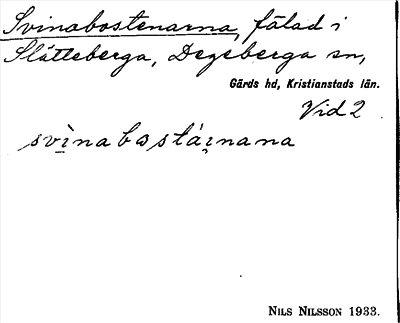 Svinabostenarna, fälad i
Slätteberga, Degeberga sn,
Gärds hd, Kristianstads län.
Vid 2
svìnabostáinana
NILS NILSSON 1933.